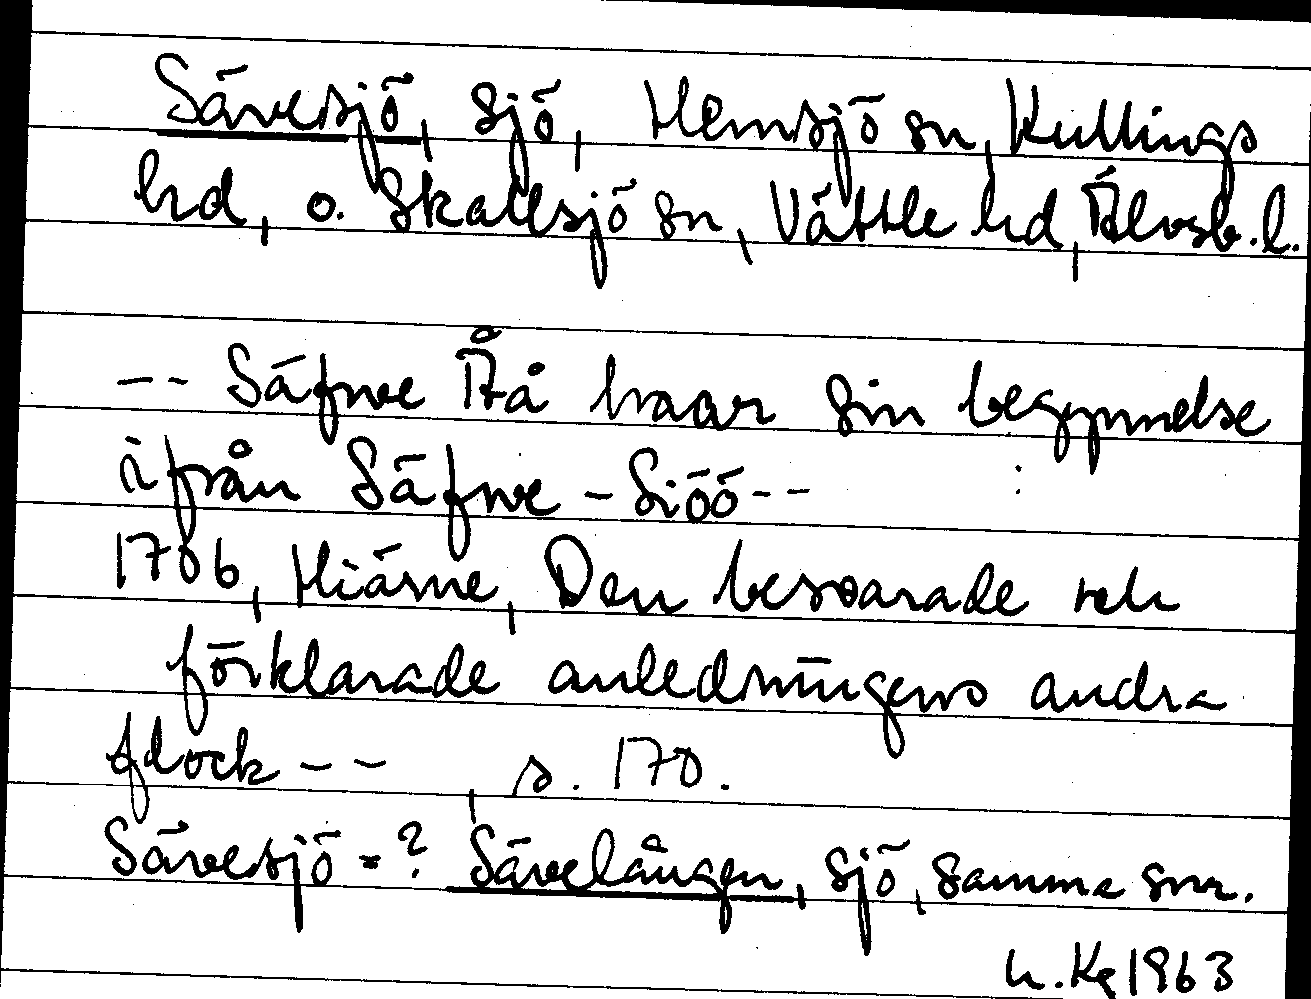 Sävesjö, sjö, Hemsjö sn, Kullings
hd, o. Skallsjö sn, Vättle hd, Älvsb. l.
-- Säfwe Åå haar sin begynnelse
ifrån Säfwe-Siöö--
1706, Hiärne, Den beswarade och
förklarade anledningens andra
flock -- , s. 170.
Sävesjö = ? Sävelången, sjö, samma snr.
1963